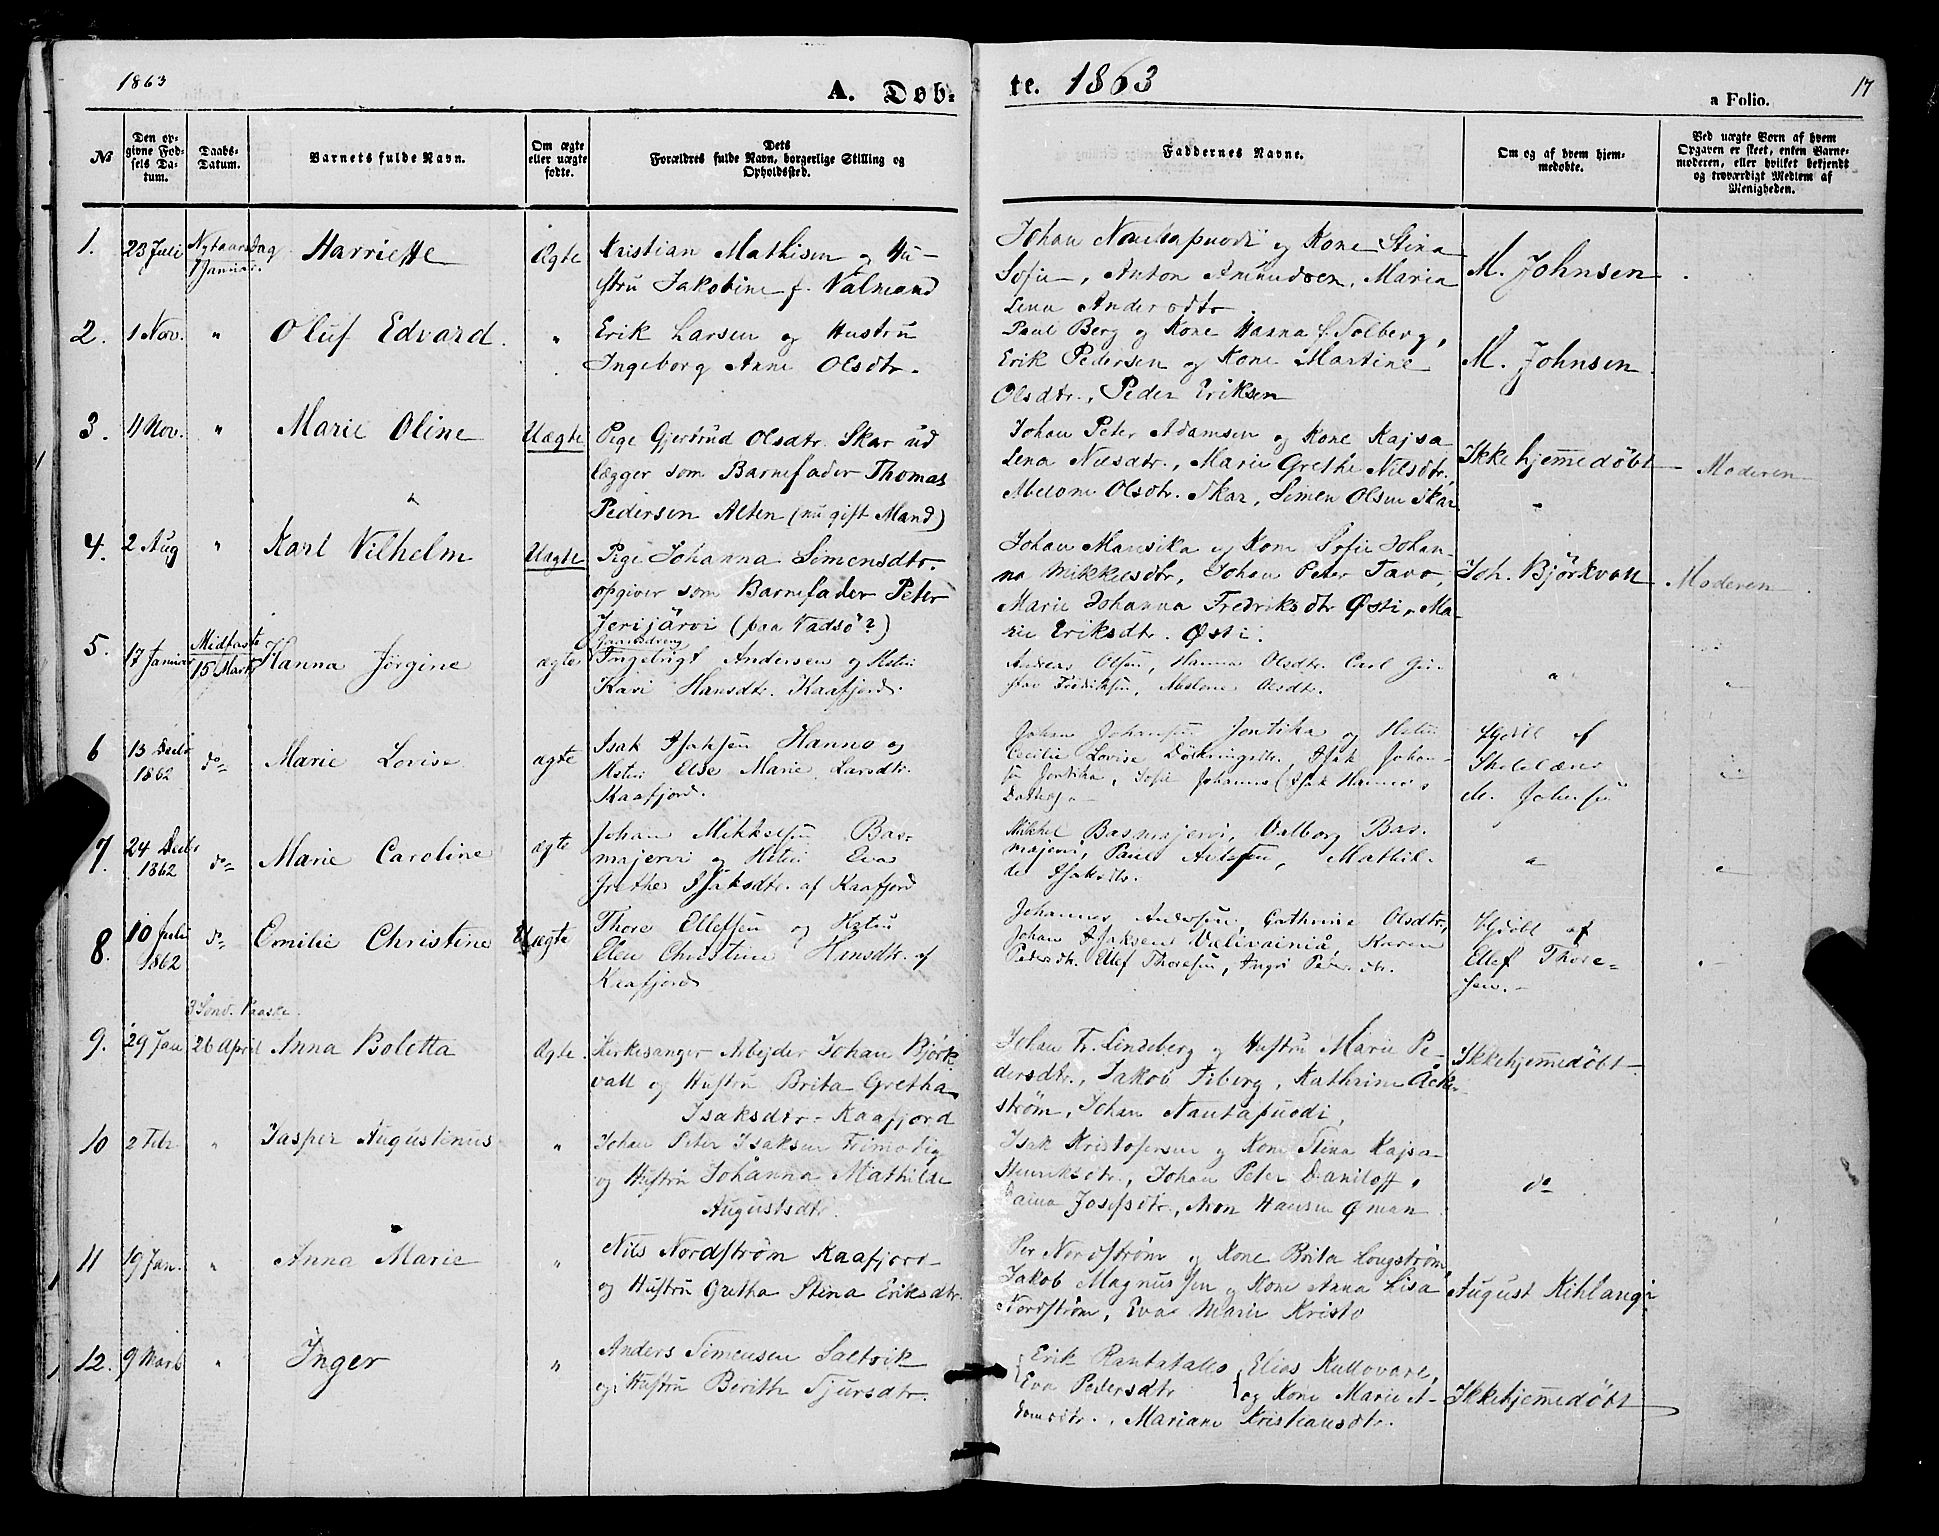 1863
A. Døb-
te. 1863
17
a Folio.
№
Den op-
givne Fød-
sels Da-
tum.
Daabs-
Datum.
Barnets fulde Navn.
Om ægte
eller uægte
fødte.
Dets
Forældres fulde Navn, borgerlige Stilling og
Opholdssted.
Faddernes Navne.
Om og af hvem hjem-
medøbte.
Ved uægte Børn af hvem
Opgaven er skeet, enten Barne-
moderen, eller hvilket bekjendt
og troværdigt Medlem af
Menigheden.
1. 23 Juli Nytaarsdag
1 Januar.
Harriette
Ægte
Kristian Mathisen og Hu-
stru Jakobine f. Valmand
Johan og Kone Stina
Sofie, Anton Amundsen, Maria
Lena Andersdtr
M. Johnsen
2. 1 Nov. "
Oluf Edvard.
"
Erik Larsen og Hustru
Ingeborg Anne Olsdtr.
Paul Berg og Kone Hanna f. Solberg,
Erik Pedersen og Kone Martine
Olsdtr., Peder Eriksen
M. Johnsen.
3. 11 Nov. "
Marie Oline
Uægte
Pige Gjertrud Olsdtr. Skar ud
lægger som Barnefader Thomas
Pedersen Alten (nu gift Mand)
Johan Peter Adamsen og Kone Kajsa
Lena Nilsdtr., Marie Grethe Nilsdtr.,
Olsdtr. Skar, Simen Olsen Skar
Ikke hjemmedøbt
Moderen
4. 2 Aug "
Karl Vilhelm
Uægte
Pige Johanna Simensdtr.
opgiver som Barnefader Peter
Jerijärvi (paa Vadsö?)
Johan Mansika og Kone Sofie Johan-
na Mikkelsdtr, Johan Peter Tavo,
Marie Johanna Fredriksdtr Østi, Ma-
rie Eriksdtr. Østi.
Joh. Björkvall
Moderen
5. 17 Januar Midfaste
15 Marts
Hanna Jørgine
ægte
Ingebrigt Andersen og Hstru
Kari Hansdtr. Kaafjord.
Anders Olsen, Hanna Olsdtr. Carl Gu-
stav Fredriksen, Olsdtr.
"
6 13 Decbr
1862
do
Marie Lovise
ægte
Isak Isaksen Hanno og
Hstru Else Marie Larsdtr.
Kaafjord.
Johan Johansen Jontika og Hstru
Cecilie Lovise Isak Johan-
sen Jontika, Sofie Johannes (Isak Hannos
Datter.)
Hjdbt af
M. Johnsen
7. 24 Decbr
1862
do
Marie Caroline
ægte
Johan Mikkelsen Bas-
majervi og Hstru Eva
Grethe Isaksdtr. af Kaafjord
Mikkel Basmajervi, Valborg Bas-
majervi, Paul Mathil-
de Isaksdtr.
"
8. 10 Juli
1862
do
Emilie Christine
ægte
Thore Ellefsen og Hstru
Elen Christine Hansdtr. af
Kaafjord
Johannes Andersen, Cathrine Olsdtr,
Johan Isaksen Välivainiå, Karen
Pedersdtr. Ellef Thoresen, Pedersdtr.
Hjdbt af
Ellef Thore-
sen.
3 Sønd. Paaske.
9. 29 Jan 26 April
Anna Boletta
Ægte.
Kirkesanger Arbejder Johan Bjørk-
vall og Hustru Brita Gretha
Isaksdtr. Kaafjord
Johan Fr. Lindberg og Hustru Marie Pe-
dersdtr., Jakob Fiberg, Kathrine Ack-
strøm, Johan Nautapuodi,
Ikkehjemmedøbt
10 2 Febr "
Jasper Augustinus
"
Johan Peter Isaksen Frimodig
og Hustru Johanna Mathilde
Augustsdtr.
Isak Kristofersen og Kone Stina Kajsa
Henriksdtr., Johan Peter Daniloff,
Josefsdtr., Aron Hansen Øman
do
11 19 Jan. "
Anna Marie
"
Nils Nordstrøm Kaafjord
og Hustru Gretha Stina Eriksdtr.
Per Nordstrøm og Kone Brita Longstrøm
Jakob Magnussen og Kone Anna Lisa
Nordstrøm, Eva Marie Kristo
August Kihlangi
12. 9 Marts "
Inger
"
Anders Simensen Saltvik
og Hustru Berith Sjursdtr.
Erik Rantatallo Elias Kullovare,
Eva Pedersdtr og Kone Marie A-
damsdtr., Mariane Kristiansdtr.
Ikkehjemmedøbt